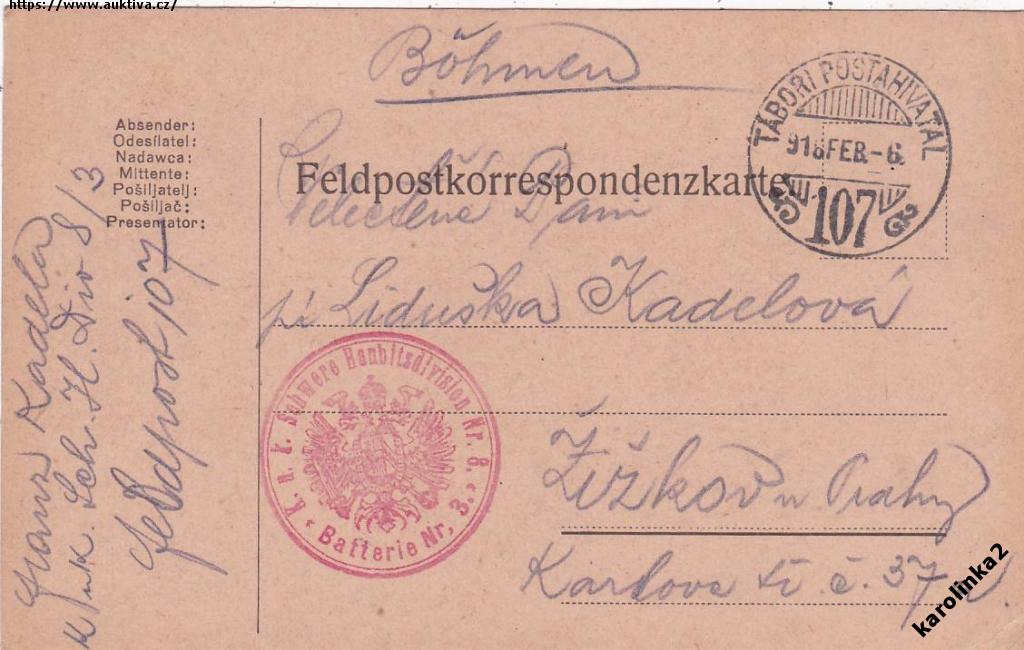 https://www.auktiva.cz/
Böhmen
TÁBORI POSTAHIVATAL
916 FEB.-6.
107
Absender:
Odesílatel:
Nadawca:
Mittente:
Pošiljatelj:
Pošiljač:
Presentator:
Feldpostkorrespondenzkarte
Velectěná Paní
pí Liduška Kadelová
Žižkov u Prahy
Karlova tř. č. 37
K. u. k. Schwere Haubitzdivision Nr. 8.
Batterie Nr. 3.
Franz Kadela
K. u. k. Sch. H. Div 8/3
Feldpost 107
karolinka2